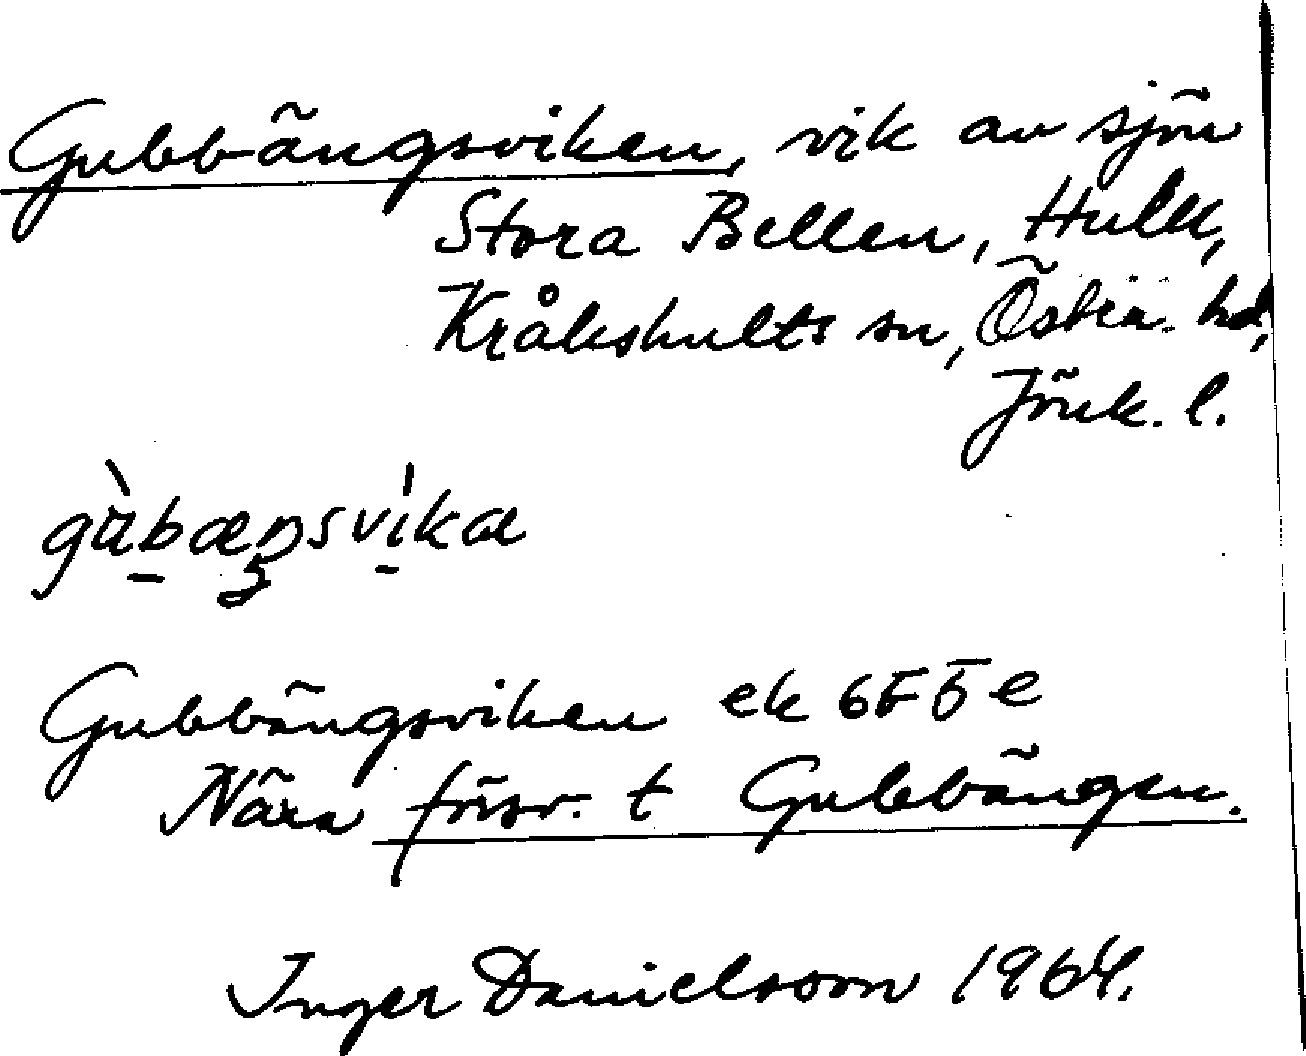 Gubbängsviken, vik av sjön
Stora Bellen, Hult,
Kråkshults sn, Östra hd,
Jönk. l.
gùbæŋsvíka
Gubbängsviken ek 6F5e
Nära försv. t Gubbängen.
Inger Danielsson 1964.